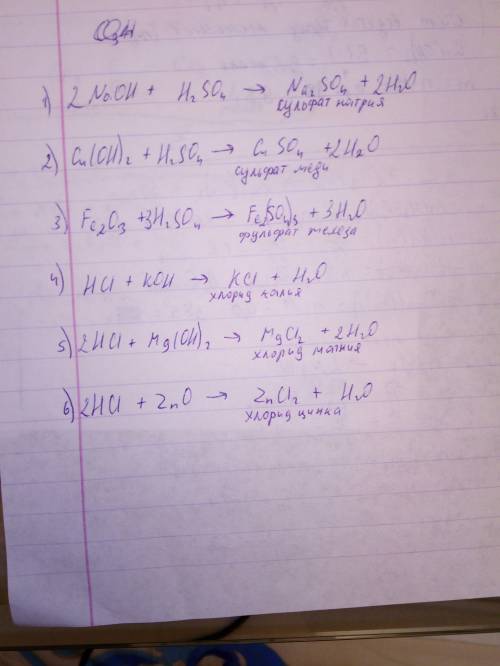 1) 2NaOH + H₂SO₄ → Na₂SO₄ + 2H₂O
сульфат натрия
2) Cu(OH)₂ + H₂SO₄ → CuSO₄ + 2H₂O
сульфат меди
3) Fe₂O₃ + 3H₂SO₄ → Fe₂(SO₄)₃ + 3H₂O
фульфат железа
4) HCl + KOH → KCl + H₂O
хлорид калия
5) 2HCl + Mg(OH)₂ → MgCl₂ + 2H₂O
хлорид магния
6) 2HCl + ZnO → ZnCl₂ + H₂O
хлорид цинка